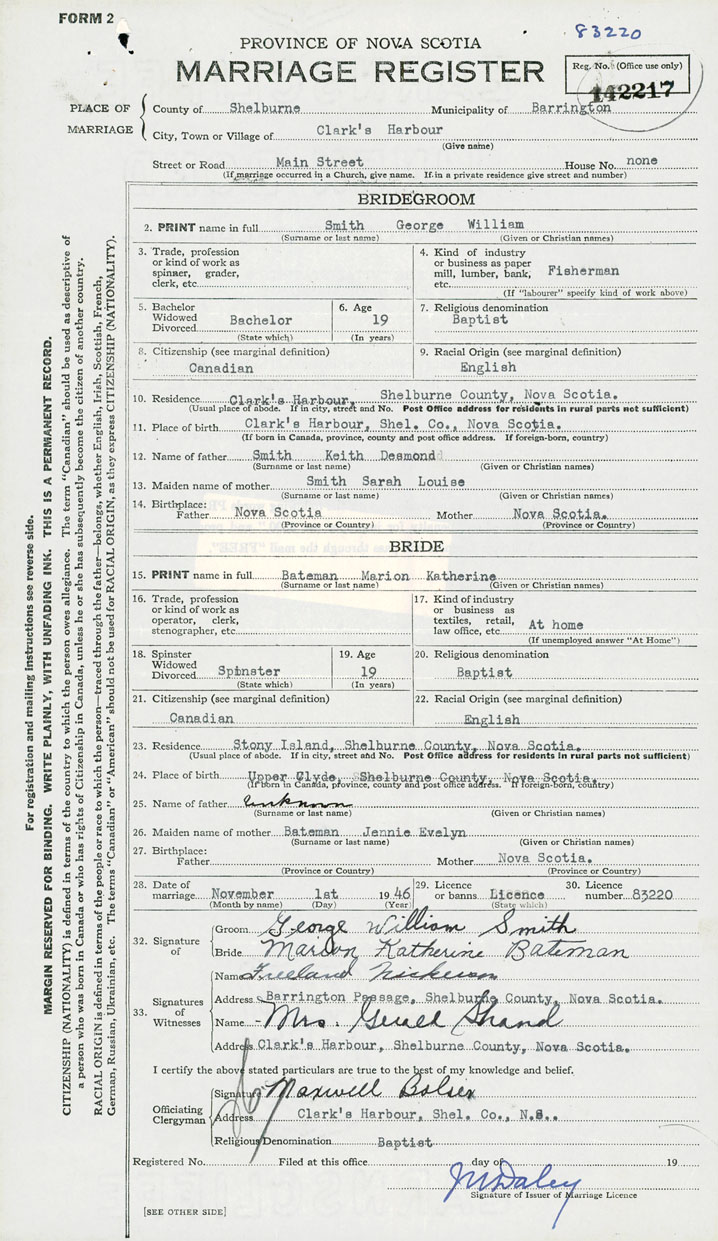 FORM 2
83220
PROVINCE OF NOVA SCOTIA
MARRIAGE REGISTER
Reg. No. (Office use only)
142217
PLACE OF MARRIAGE
County of Shelburne Municipality of Barrington
City, Town or Village of Clark's Harbour
(Give name)
Street or Road Main Street House No. none
(If marriage occurred in a Church, give name. If in a private residence give street and number)
BRIDEGROOM
2. PRINT name in full Smith George William
(Surname or last name) (Given or Christian names)
3. Trade, profession
or kind of work as
spinner, grader,
clerk, etc.
4. Kind of industry
or business as paper
mill, lumber, bank,
etc. Fisherman
(If "labourer" specify kind of work above)
5. Bachelor
Widowed
Divorced Bachelor
(State which)
6. Age
19
(In years)
7. Religious denomination
Baptist
8. Citizenship (see marginal definition)
Canadian
9. Racial Origin (see marginal definition)
English
10. Residence Clark's Harbour, Shelburne County, Nova Scotia.
(Usual place of abode. If in city, street and No. Post Office address for residents in rural parts not sufficient)
11. Place of birth Clark's Harbour, Shel. Co., Nova Scotia.
(If born in Canada, province, county and post office address. If foreign-born, country)
12. Name of father Smith Keith Desmond
(Surname or last name) (Given or Christian names)
13. Maiden name of mother Smith Sarah Louise
(Surname or last name) (Given or Christian names)
14. Birthplace:
Father Nova Scotia Mother Nova Scotia.
(Province or Country) (Province or Country)
BRIDE
15. PRINT name in full Bateman Marion Katherine
(Surname or last name) (Given or Christian names)
16. Trade, profession
or kind of work as
operator, clerk,
stenographer, etc.
17. Kind of industry
or business as
textiles, retail,
law office, etc. At home
(If unemployed answer "At Home")
18. Spinster
Widowed
Divorced Spinster
(State which)
19. Age
19
(In years)
20. Religious denomination
Baptist
21. Citizenship (see marginal definition)
Canadian
22. Racial Origin (see marginal definition)
English
23. Residence Stony Island, Shelburne County, Nova Scotia.
(Usual place of abode. If in city, street and No. Post Office address for residents in rural parts not sufficient)
24. Place of birth Upper Clyde, Shelburne County, Nova Scotia.
(If born in Canada, province, county and post office address. If foreign-born, country)
25. Name of father unknown
(Surname or last name) (Given or Christian names)
26. Maiden name of mother Bateman Jennie Evelyn
(Surname or last name) (Given or Christian names)
27. Birthplace:
Father Mother Nova Scotia.
(Province or Country) (Province or Country)
28. Date of
marriage November 1st 1946
(Month by name) (Day) (Year)
29. Licence
or banns Licence
(State which)
30. Licence
number 83220
32. Signature of
Groom George William Smith
Bride Marion Katherine Bateman
33. Signatures of Witnesses
Name Freeland Nickerson
Address Barrington Passage, Shelburne County, Nova Scotia.
Name Mrs. Gerald Shand
Address Clark's Harbour, Shelburne County, Nova Scotia.
I certify the above stated particulars are true to the best of my knowledge and belief.
Officiating Clergyman
Signature Maxwell Bolser
Address Clark's Harbour, Shel. Co., N.S.
Religious Denomination Baptist
Registered No. Filed at this office day of 19
Signature of Issuer of Marriage Licence
[SEE OTHER SIDE]
For registration and mailing instructions see reverse side.
MARGIN RESERVED FOR BINDING. WRITE PLAINLY, WITH UNFADING INK. THIS IS A PERMANENT RECORD.
CITIZENSHIP (NATIONALITY) is defined in terms of the country to which the person owes allegiance. The term "Canadian" should be used as descriptive of
a person who was born in Canada or who has rights of Citizenship in Canada, unless he or she has subsequently become the citizen of another country.
RACIAL ORIGIN is defined in terms of the people or race to which the person—traced through the father—belongs, whether English, Irish, Scottish, French,
German, Russian, Ukrainian, etc. The terms "Canadian" or "American" should not be used for RACIAL ORIGIN, as they express CITIZENSHIP (NATIONALITY).